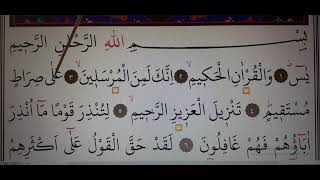 بِسْمِ اللّٰهِ الرَّحْمٰنِ الرَّحٖيمِ
يٰسٓ ۚ ﴿١﴾ وَالْقُرْاٰنِ الْحَكٖيمِ ۙ ﴿٢﴾ اِنَّكَ لَمِنَ الْمُرْسَلٖينَ ۙ ﴿٣﴾ عَلٰى صِرَاطٍ
مُسْتَقٖيمٍ ؕ ﴿٤﴾ تَنْزٖيلَ الْعَزٖيزِ الرَّحٖيمِ ۙ ﴿٥﴾ لِتُنْذِرَ قَوْمًا مَٓا اُنْذِرَ
اٰبَٓاؤُ۬هُمْ فَهُمْ غَافِلُونَ ﴿٦﴾ لَقَدْ حَقَّ الْقَوْلُ عَلٰٓى اَكْثَرِهِمْ